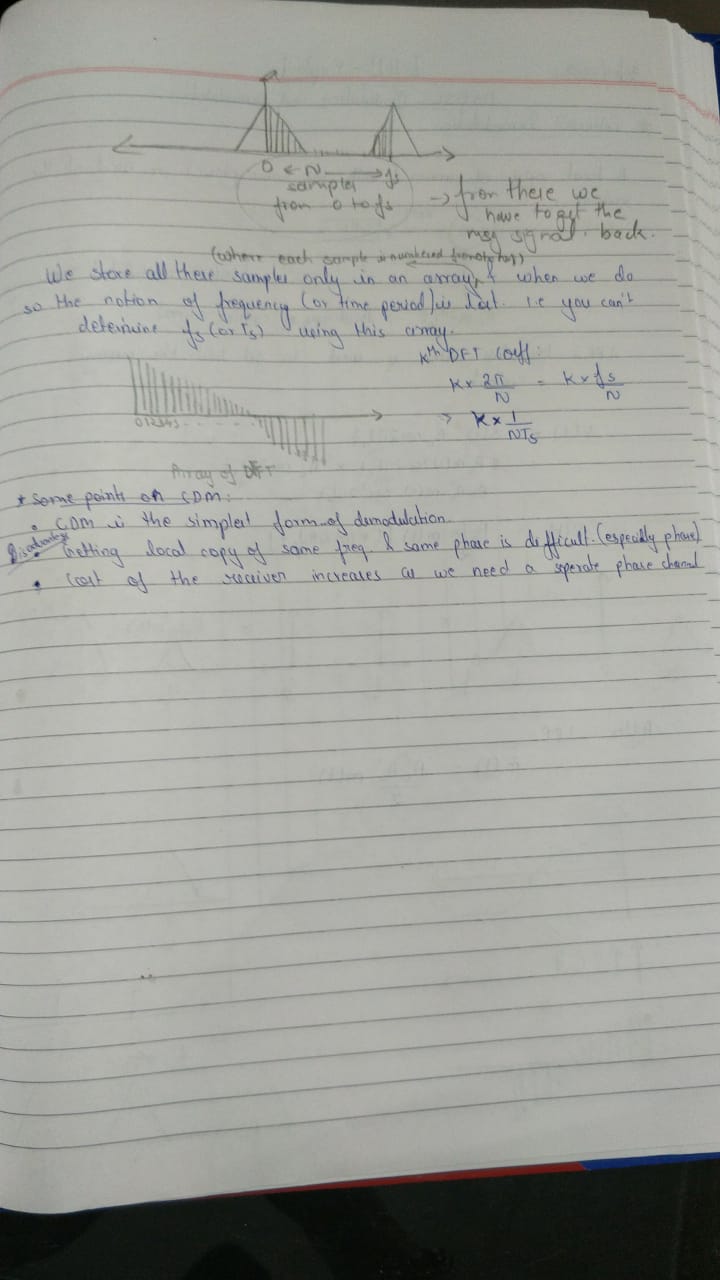 0 ← N → fs
samples
from 0 to fs
→ from there we
have to get the
msg signal back.
(where each sample is numbered from
We store all these samples only in an array, & when we do
so the notion of frequency (or time period) is lost. i.e you can't
determine fs (or Ts) using this array.
Kth DFT coeff:
K × 2π/N = K × fs/N
⇒ K × 1/NTs
0 1 2 3 4 5 - - - -
Array of DFT
* Some points on CDM:
• CDM is the simplest form of demodulation.
Disadvantages
• Getting local copy of same freq. & same phase is difficult. (especially phase)
• Cost of the receiver increases as we need a seperate phase channel